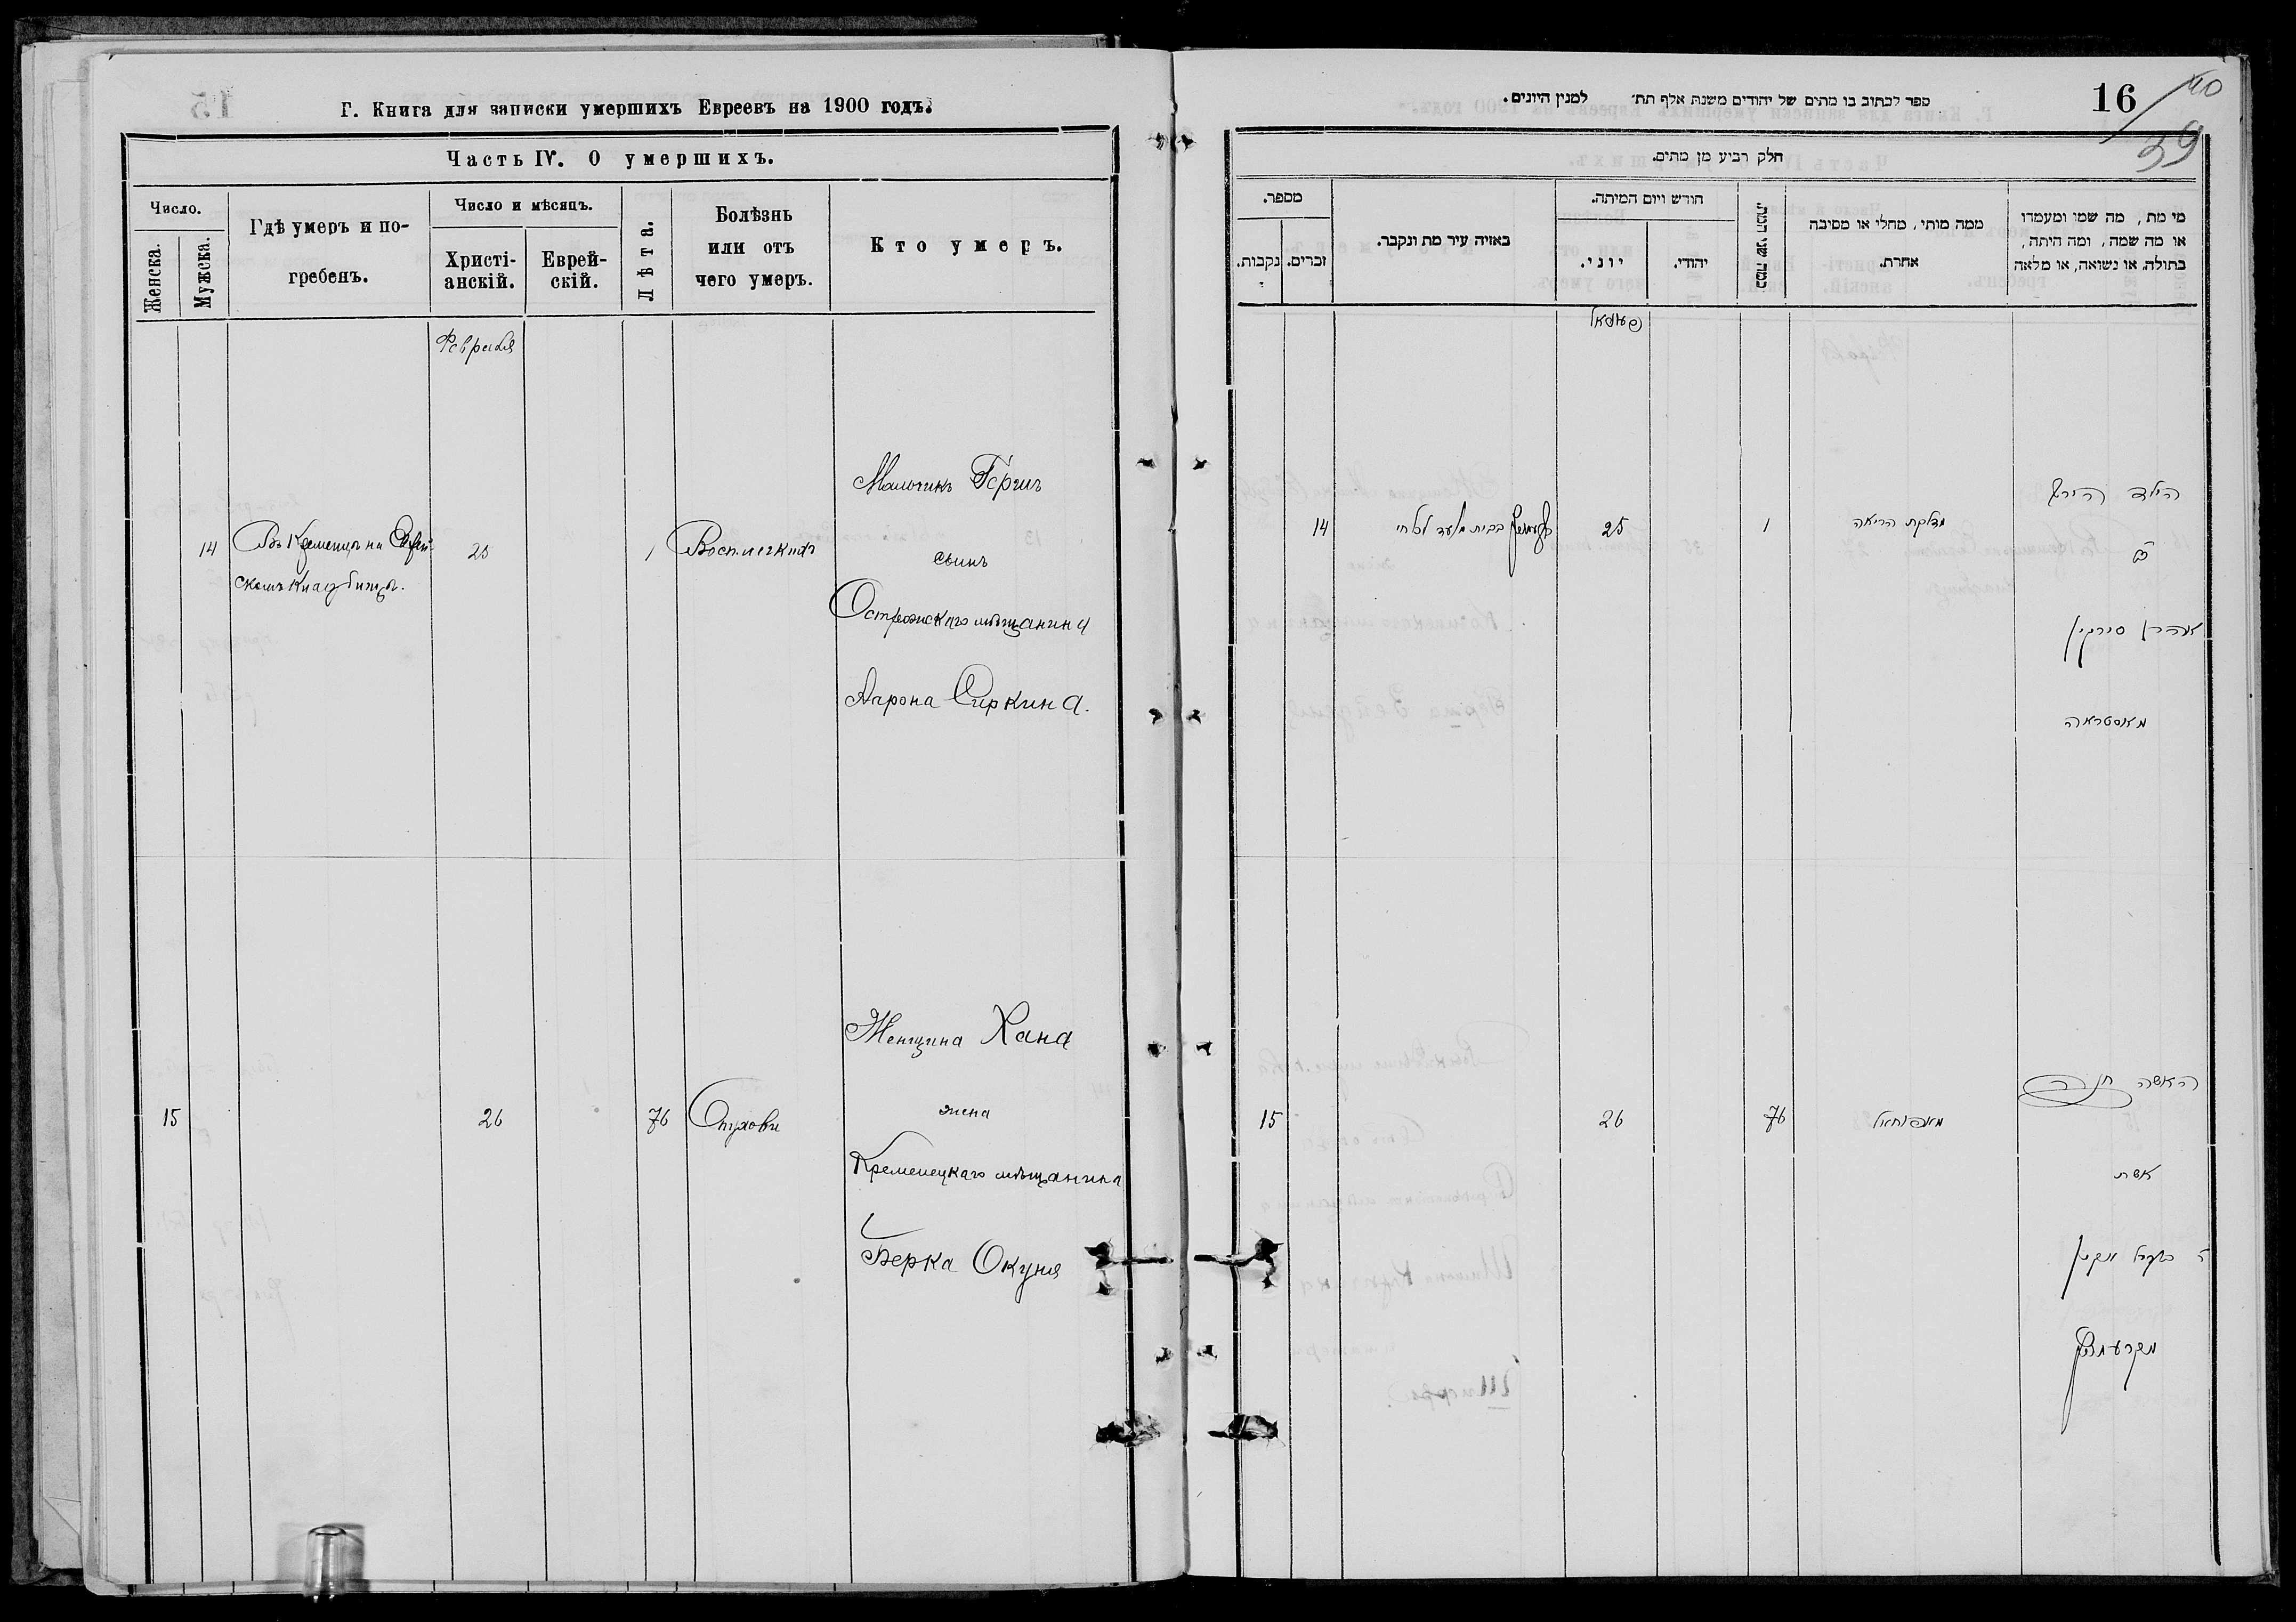 Г. Книга для записки умершихъ Евреевъ на 1900 годъ.
Часть IV. О умершихъ.
Число.
Женска.
Мужска.
Гдѣ умеръ и по-
гребенъ.
Число и мѣсяцъ.
Христі-
анскій.
Еврей-
скій.
Лѣта.
Болѣзнь
или отъ
чего умеръ.
Кто умеръ.
Февраля
14
Въ Кременцѣ на Еврей-
скомъ кладбищѣ.
25
1
Воспл. легкихъ
Мальчикъ Гершъ
сынъ
Острожскаго мѣщанина
Аарона Сиркина.
15
26
76
Опухоли
Женщина Хана
жена
Кременецкаго мѣщанина
Берка Окуня
ספר לכתוב בו מתים של יהודים משנת אלף תת׳ למנין היונים.
16
40
39
חלק רביע מן מתים.
מספר.
נקבות.
זכרים.
באיזה עיר מת ונקבר.
חודש ויום המיתה.
יוני.
יהודי.
כמה שני המת.
ממה מותי, מחלי או מסיבה
אחרת.
מי מת, מה שמו ומעמדו
או מה שמה, ומה היתה,
בתולה, או נשואה, או מלאה
14
25
1
מדלקת הריאה
הילד הירש
אהרן סירקין
מאוסטראה
15
26
76
האשה חנה
אשת
ר בערל אקון
מקרעמניץ